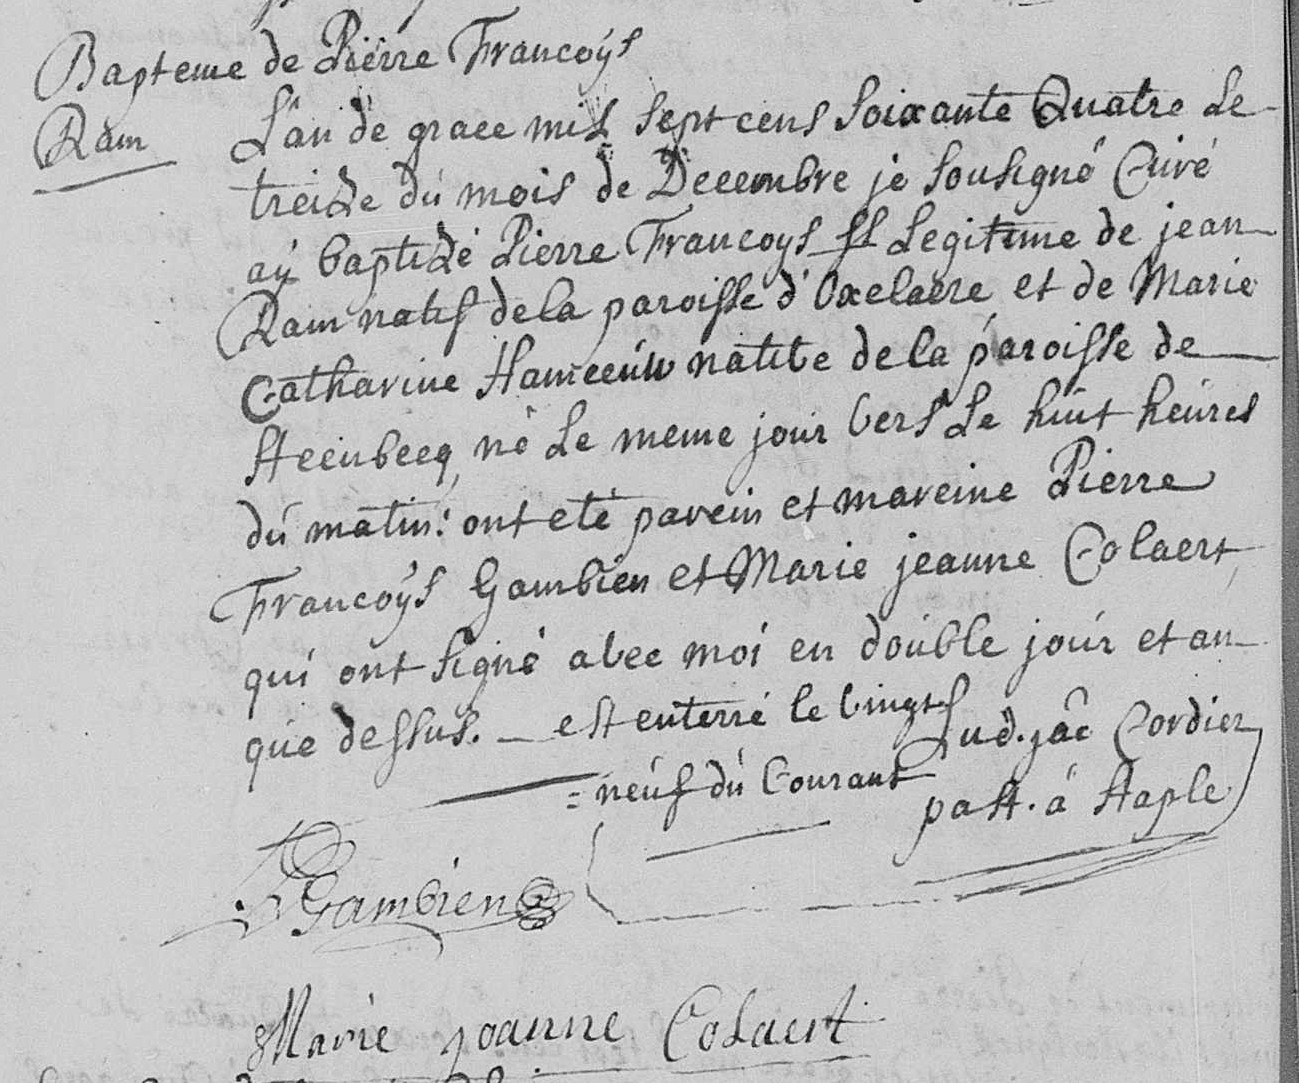 Bapteme de Pierre Francoÿs
Ram
L'an de grace mil sept cens soixante quatre le
treize du mois de Decembre je sousigné Curé
aÿ baptizé Pierre Francoys fl legitime de jean
Ram natif de la paroisse d'Oxelaere et de Marie
Catharine Hameeúw native de la paroisse de
Steenbecq né le meme jour vers le huit heúres
dú matin: ont eté parein et mareine Pierre
Francoÿs Gambien et Marie jeanne Colaert
qui ont signé avec moi en doúble joúr et an
que dessus. est enterré le vingt
neúf dú Courant
Lud. jâc Cordier
past. â Staple
Gambien
Marie joanne Colaert